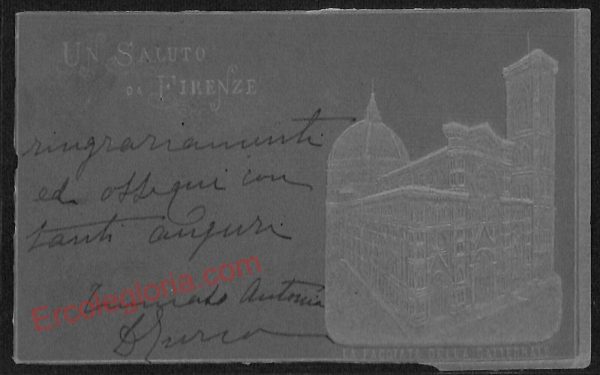 UN SALUTO
DA FIRENZE
ringraziamenti
ed ossequi con
tanti auguri
Antonio
Ercolegloria.com
LA FACCIATA DELLA CATTEDRALE